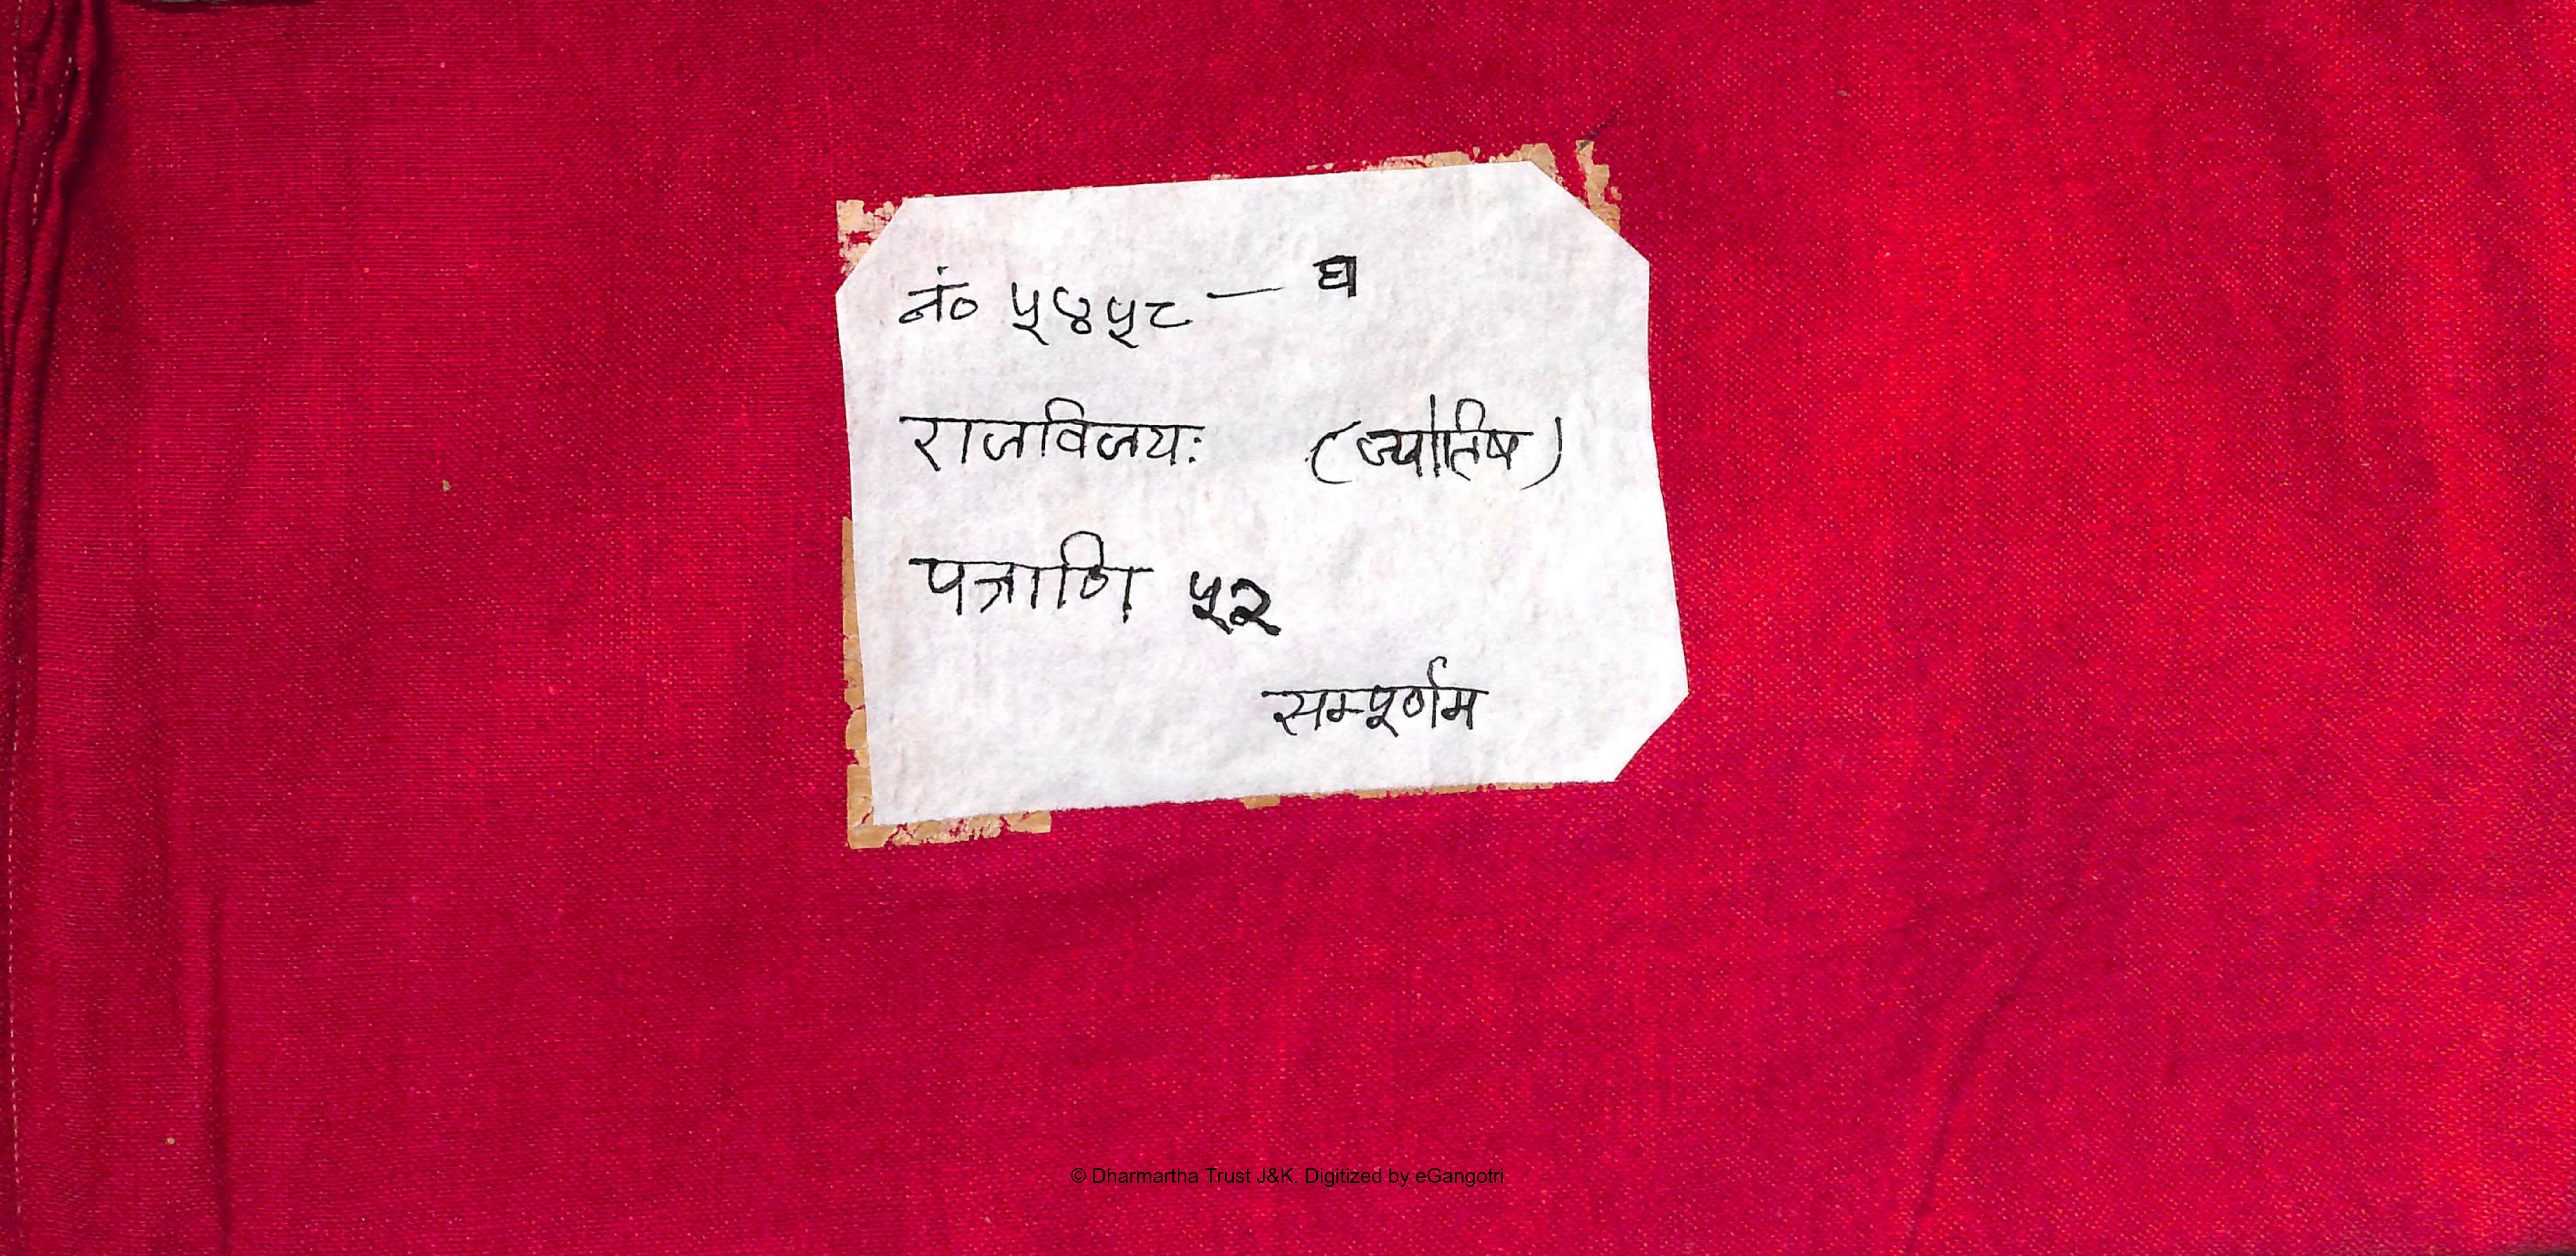 नं० ५४५८ — घ
राजविजयः (ज्योतिष)
पत्राणि ५२
सम्पूर्णम
© Dharmartha Trust J&K. Digitized by eGangotri